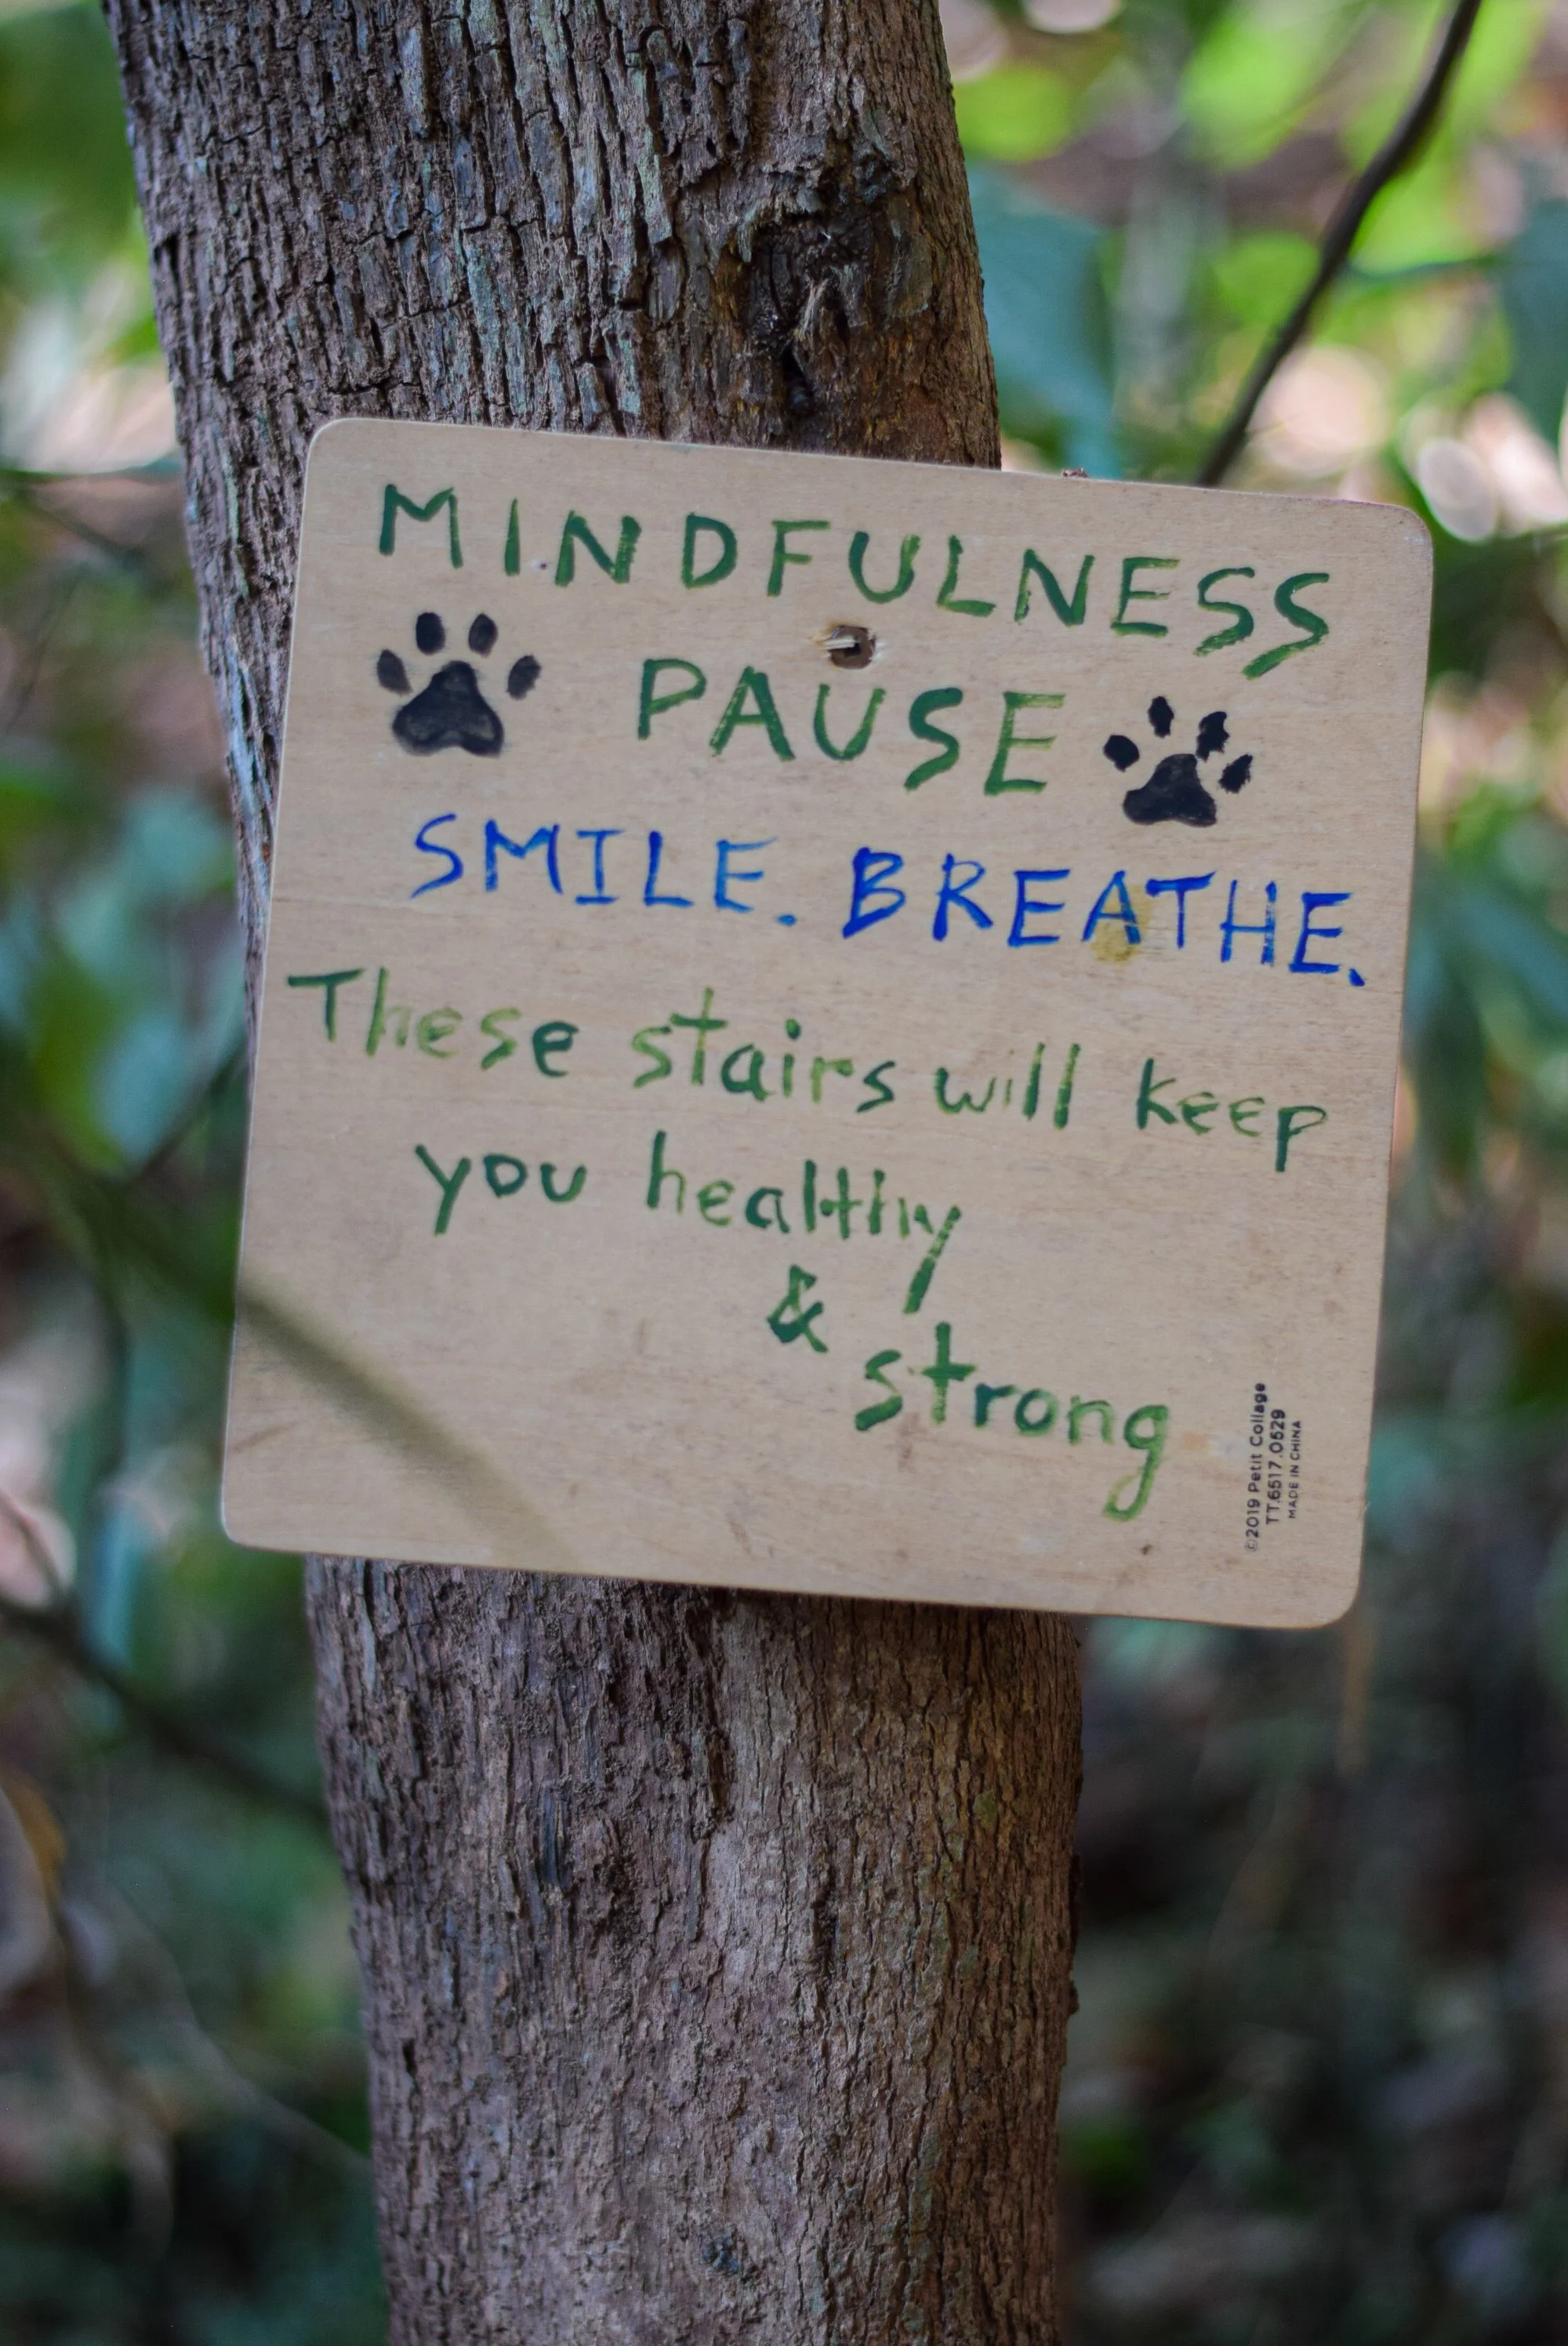 MINDFULNESS
PAUSE
SMILE. BREATHE.
These stairs will keep
you healthy
&
strong
©2019 Petit Collage
TT.6517.0529
MADE IN CHINA